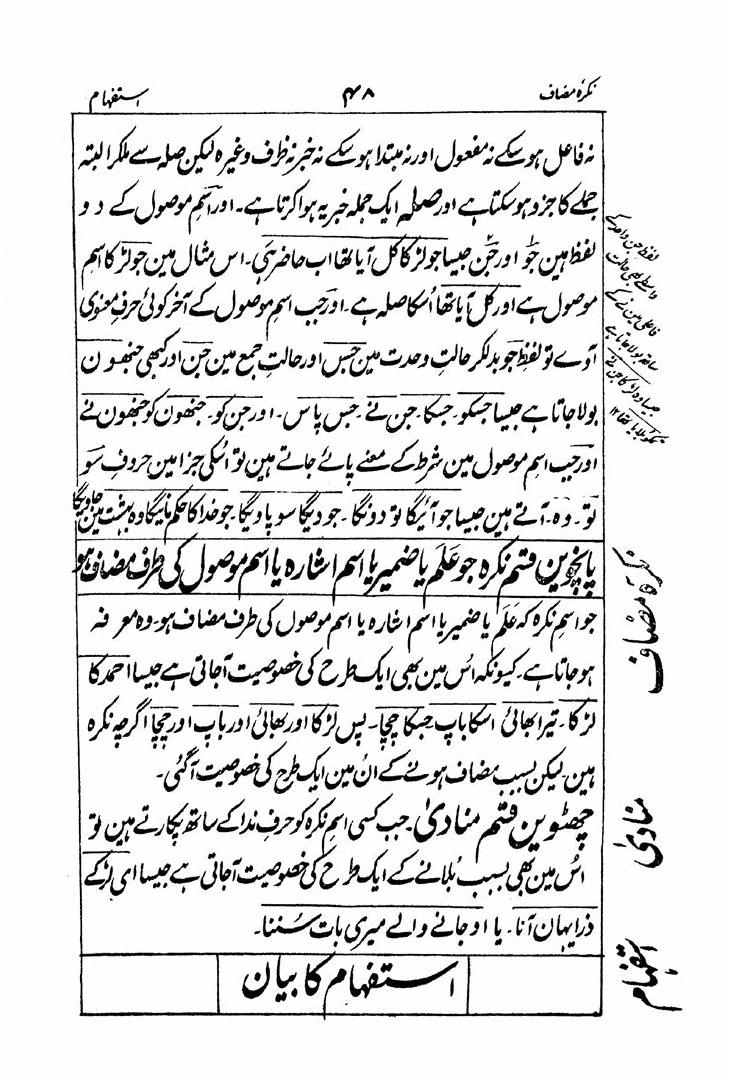 نکرۂ مضاف
۴۸
استفہام
نہ فاعل ہوسکے نہ مفعول اور نہ مبتدا ہوسکے نہ خبر نہ ظرف وغیرہ لیکن صلہ سے ملکر البتہ
جملے کا جزو ہوسکتا ہے اور صلہ ایک جملہ خبریہ ہوا کرتا ہے۔ اور اسم موصول کے دو
لفظ ہین جو اور جن جیسا جو لڑکا کل آیا تھا اب حاضر ہی۔ اس مثال مین جو لڑکا اسم
موصول ہے اور کل آیا تھا اُسکا صلہ ہے۔ اور جب اسم موصول کے آخر کوئی حرف معنوی
آوے تو لفظ جو بدلکر حالتِ وحدت مین جس اور حالتِ جمع مین جن اور کبھی جنھون
بولا جاتا ہے جیسا جسکو۔ جسکا۔ جن نے۔ جس پاس۔ اور جن کو۔ جنھون کو جنھون نے
اور جب اسم موصول مین شرط کے معنے پائے جاتے ہین تو اُسکی جزا مین حروف سو
تو۔ وہ۔ آتے ہین جیسا جو آئیگا تو دونگا۔ جو دیگا سو پاویگا۔ جو خدا کا حکم مانیگا وہ بہشت مین جاویگا
پانچوین قسم نکرہ جو عَلَم یا ضمیر یا اسم اشارہ یا اسم موصول کی طرف مضاف ہو
جو اسم نکرہ کہ عَلَم یا ضمیر یا اسم اشارہ یا اسم موصول کی طرف مضاف ہو۔ وہ معرفہ
ہو جاتا ہے۔ کیونکہ اُس مین بھی ایک طرح کی خصوصیت آجاتی ہے جیسا احمد کا
لڑکا۔ تیرا بھائی اسکا باپ جسکا چچا۔ پس لڑکا اور بھائی اور باپ اور چچا اگرچہ نکرہ
ہین۔ لیکن بسبب مضاف ہونے کے اُن مین ایک طرح کی خصوصیت آگئی۔
چھٹوین قسم منادیٰ۔ جب کسی اسم نکرہ کو حرف ندا کے ساتھ پکارتے ہین تو
اُس مین بھی بسبب بُلانے کے ایک طرح کی خصوصیت آجاتی ہے جیسا ای لڑکے
ذرا یہان آنا۔ یا او جانے والے میری بات سُننا۔
استفہام کا بیان
لفظ جن واحد کے
واسطے بھی حالت
فاعلی مین نے کے
ساتھ بولا جاتا ہے
نکرۂ مضاف
منادیٰ
استفہام